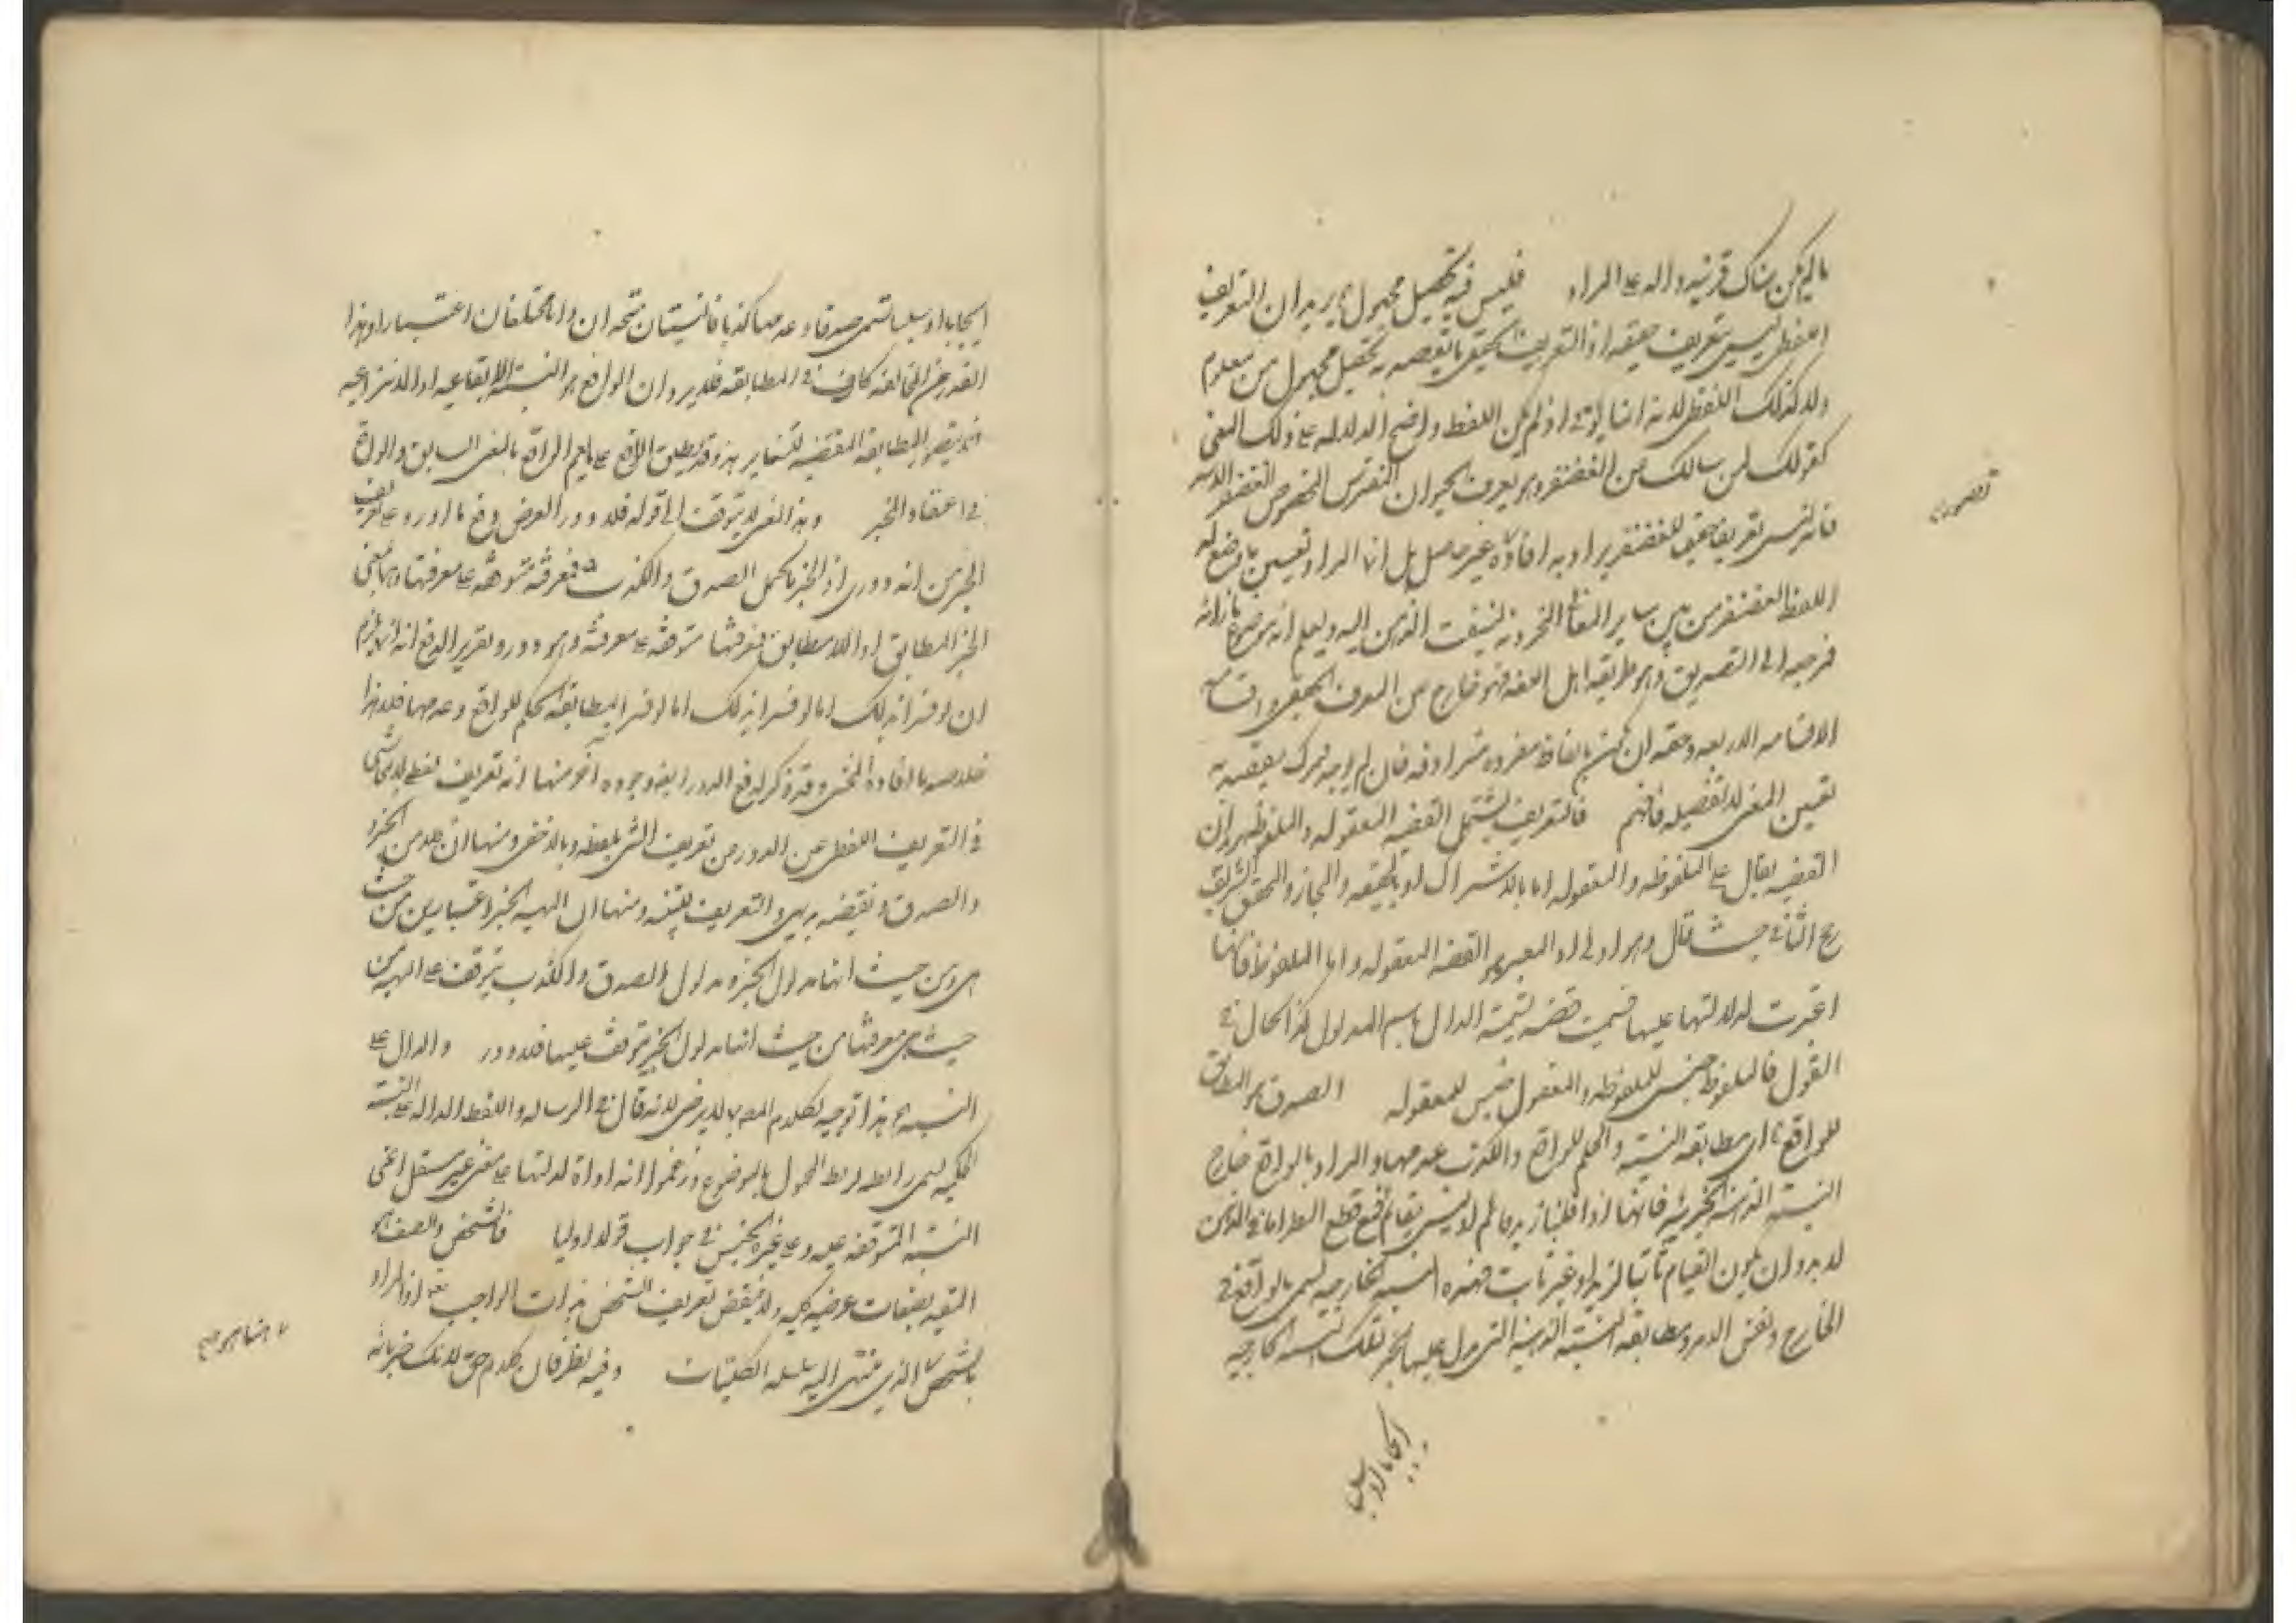 مالم يكن هناك قرينة دالة على المراد فليس فيه تحصيل مجهول يريد ان التعريف
اللفظي ليس بتعريف حقيقة اذ التعريف الحقيقي ما يقصد به تحصيل مجهول من معلوم
ولا كذلك اللفظي لانه انما يؤتى اذ لم يكن اللفظ واضح الدلالة على ذلك المعنى
كقولك لمن سالك عن الغضنفر وهو يعرف الحيوان المفترس المخصوص الغضنفر الاسد
فانه ليس تعريفا حقيقيا للغضنفر يراد به افادة غير حاصل بل انما المراد تعيين ما وضع له
اللفظ الغضنفر من بين ساير المعاني المخزونة ليلتفت الذهن اليه ويعلم انه موضوع بازائه
فمرجعه الى التصديق وهو طريقة اهل اللغة فهو خارج عن المعرف الحقيقي واقسامه
الاقسامه الاربعة وحقه ان يكون بالفاظ مفردة مترادفة فان لم يوجد فمركب يقصد به
تعيين المعنى لا تفصيله فافهم فالتعريف يشتمل القضية المعقولة والملفوظة يريد ان
القضية يقال على الملفوظة والمعقولة اما بالاشتراك او بالحقيقة والمجاز والمحقق الشريف
رجح الثاني حيث قال وهو اولى اذ المعتبر هو القضية المعقولة واما الملفوظة فانما
اعتبرت لدلالتها عليها فسميت قضية تسمية الدال باسم المدلول كذا الحال في
القول فالملفوظ جنس للملفوظة والمعقول جنس للمعقولة الصدق هو المطابق
للواقع اي مطابقة النسبة والحكم للواقع والكذب عدمها والمراد بالواقع خارج
النسبة الذهنية الخبرية فانها اذا قلنا زيد قائم او ليس بقائم فمع قطع النظر عما في الذهن
لا بد وان يكون القيام ثابتا لزيد او غير ثابت فهذه النسبة الخارجية تسمى بالواقع في
الخارج ونفس الامر ومطابقة النسبة الذهنية التي دل عليها الخبر لتلك النسبة الخارجية
ايجابا او سلبا
تصوري
ايجابا او سلبا تسمى صدقا وعدمها كذبا فالنسبتان متحدان ذاتا مختلفان اعتبارا وهذا
القدر من المخالفة كاف في المطابقة فلا يرد ان الواقع هو النسبة الايقاعية او الانتزاعية
فلا يتصور المطابقة المقتضية للتغاير هذا وقد يطلق الواقع على ما يعم الواقع بالمعنى السابق والواقع
في اعتقاد المخبر وبهذا المعنى لا يتوقف الى قوله فلا دور الغرض دفع ما اورد على تعريف
الخبر من انه دوري اذ الخبر ما يحتمل الصدق والكذب فمعرفته متوقفة على معرفتهما وهما بمعنى
الخبر المطابق او اللامطابق فمعرفتهما متوقفة على معرفته وهو دور وتقرير الدفع انه انما يلزم
ان لو فسرا بذلك اما لو فسرا بمطابقة الحكم للواقع وعدمها فلا هذا
خلاصة ما افاده المحشي وقد ذكر لدفع الدور ايضا وجوه اخر منها انه تعريف لفظي لا يتحاشى
في التعريف اللفظي عن الدور من تعريف الشيء بلفظه وبالاخفى ومنها ان كلا من الخبر
والصدق ونقيضه بديهي والتعريف تنبيه ومنها ان لماهية الخبر اعتبارين من حيث
هي ومن حيث انها مدلول الخبر ومدلول الصدق والكذب يتوقف على الماهية من
حيث هي ومعرفتها من حيث انها مدلول الخبر يتوقف عليهما فلا دور والدال على
النسبة هذا توجيه لكلام المص بما لا يرضى لانه قال في الرسالة واللفظ الدالة على النسبة
الحكمية يسمى رابطة لربط المحمول بالموضوع وزعموا انه اداة لدلالتها على معنى غير مستقل اعني
النسبة المتوقفة عليه وعلى غيره الجنس في جواب قوله اوليا فالشخص والصنف هو
المقيد بصفات عرضية كلية ولا ينتقض تعريف الشخص بذات الواجب تعالى اذ المراد
بالشخص الذي ينتهي اليه سلسلة الكليات وفيه نظر فان كلام حق لانك خبير بانه